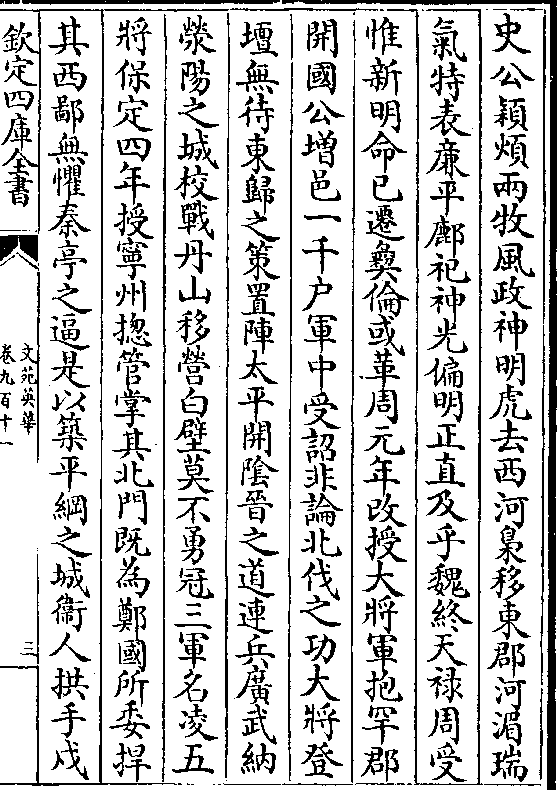 史公穎煩兩牧風政神明虎去西河梟移東郡河湄瑞
氣特表廉平鄜祀神光偏明正直及乎魏終天祿周受
惟新明命已遷彞倫或革周元年改授大將軍抱罕郡
開國公增邑一千户軍中受詔非論北伐之功大將登
壇無待東歸之策置陣太平開隂晉之道連兵廣武納
滎陽之城校戰丹山移營白壁莫不勇冠三軍名凌五
將保定四年授寧州揔管掌其北門既為鄭國所委捍
其西鄙無懼秦亭之逼是以築平綱之城衞人拱手戍
欽定四庫全書
文苑英華
卷九百十一
三